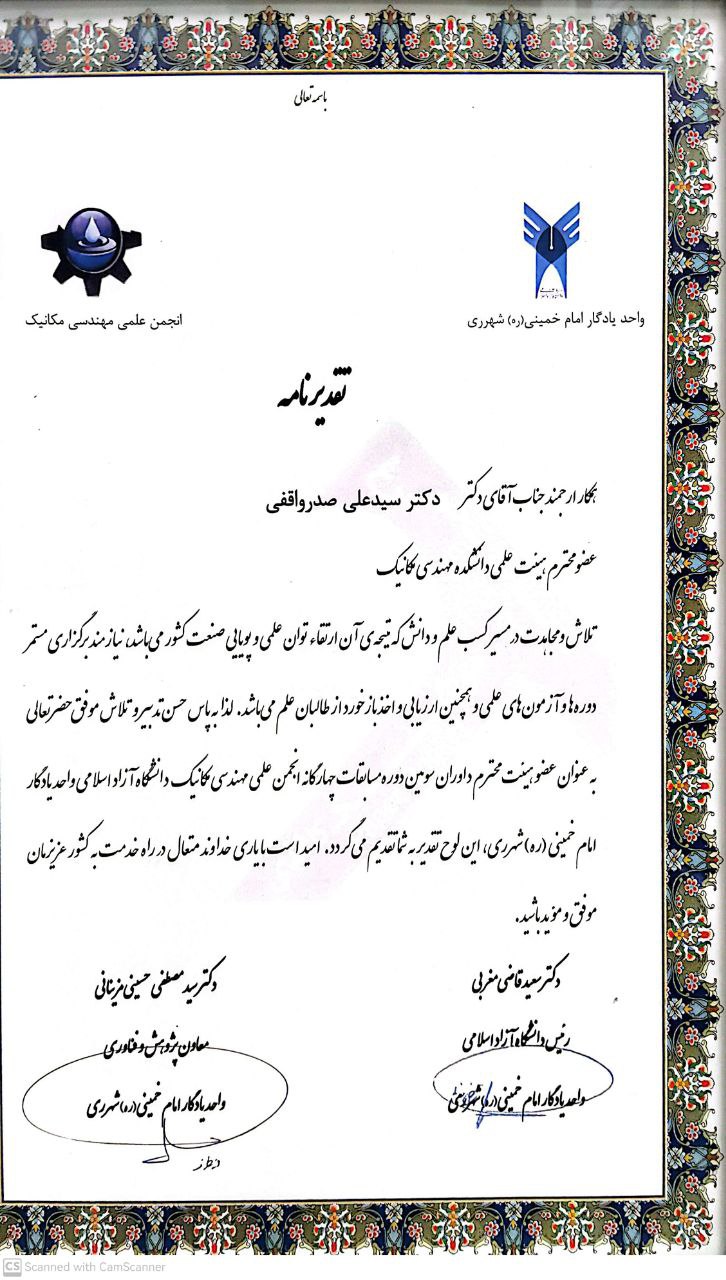 باسمه تعالی
واحد یادگار امام خمینی(ره) شهرری
انجمن علمی مهندسی مکانیک
تقدیرنامه
همکار ارجمند جناب آقای دکتر دکتر سیدعلی صدرواقفی
عضو محترم هیئت علمی دانشکده مهندسی مکانیک
تلاش و مجاهدت در مسیر کسب علم و دانش که نتیجه‌ی آن ارتقاء توان علمی و پویایی صنعت کشور می‌باشد، نیازمند برگزاری مستمر
دوره‌ها و آزمون‌های علمی و همچنین ارزیابی و اخذ بازخورد از طالبان علم می‌باشد. لذا به پاس حسن تدبیر و تلاش موفق حضرتعالی
به عنوان عضو هیئت محترم داوران سومین دوره مسابقات چهارگانه انجمن علمی مهندسی مکانیک دانشگاه آزاد اسلامی واحد یادگار
امام خمینی (ره) شهرری، این لوح تقدیر به شما تقدیم می‌گردد. امید است با یاری خداوند متعال در راه خدمت به کشور عزیزمان
موفق و مؤید باشید.
دکتر سعید قاضی مغربی
رئیس دانشگاه آزاد اسلامی
واحد یادگار امام خمینی (ره) شهرری
دکتر سید مصطفی حسینی مزینانی
معاون پژوهش و فناوری
واحد یادگار امام خمینی (ره) شهرری
CS Scanned with CamScanner